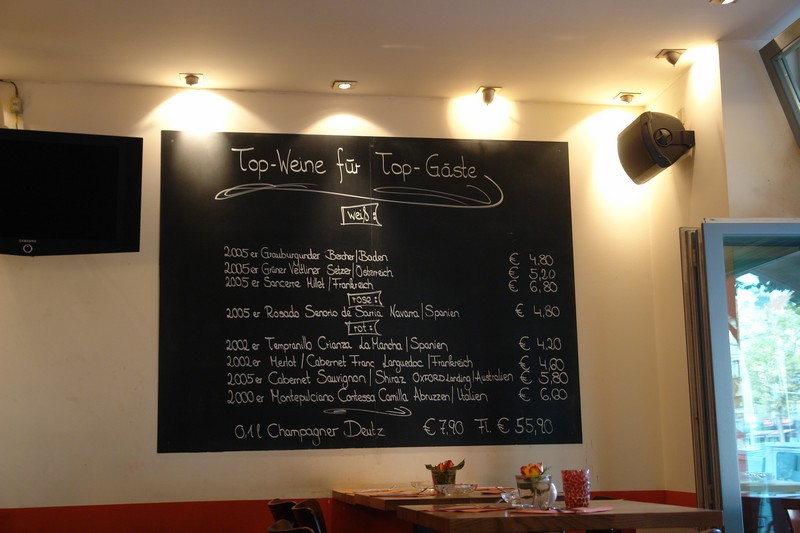 Top-Weine für Top-Gäste
weiß:
2005er Grauburgunder Bercher/Baden € 4,80
2005er Grüner Veltliner Setzer/Österreich € 5,20
2005er Sancerre Millet/Frankreich € 6,80
rose:
2005er Rosado Senorio de Sarria Navarra/Spanien € 4,80
rot:
2002er Tempranillo Crianza La Mancha/Spanien € 4,20
2002er Merlot/Cabernet Franc Languedoc/Frankreich € 4,60
2005er Cabernet Sauvignon/Shiraz OXFORD Landing/Australien € 5,80
2000er Montepulciano Contessa Camilla Abruzzen/Italien € 6,60
0,1l Champagner Deutz € 7,90 Fl. € 55,90
SAMSUNG